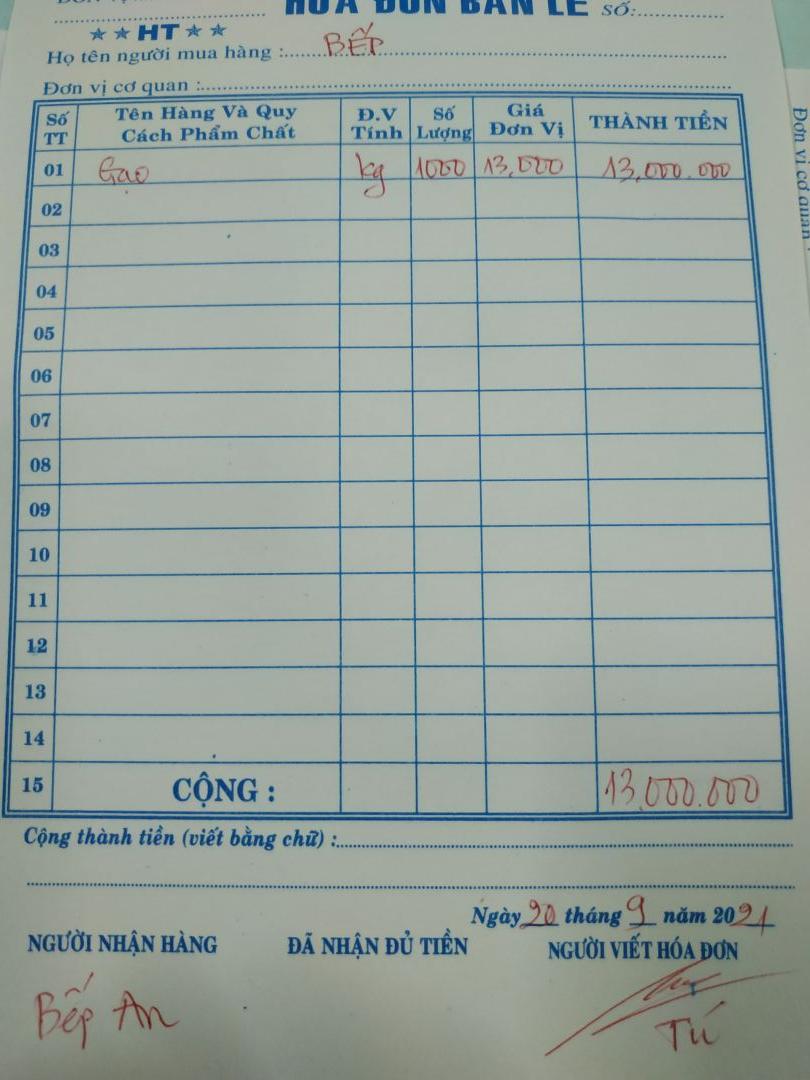 HÓA ĐƠN BÁN LẺ SỐ:
★ ★ HT ★ ★
Họ tên người mua hàng : BẾP
Đơn vị cơ quan :
Số TT Tên Hàng Và Quy Cách Phẩm Chất Đ.V Tính Số Lượng Giá Đơn Vị THÀNH TIỀN
01 Gạo kg 1000 13,000 13,000.000
02
03
04
05
06
07
08
09
10
11
12
13
14
15 CỘNG : 13.000.000
Cộng thành tiền (viết bằng chữ) :
Ngày 20 tháng 9 năm 2021
NGƯỜI NHẬN HÀNG ĐÃ NHẬN ĐỦ TIỀN NGƯỜI VIẾT HÓA ĐƠN
Bếp An Tú
Đơn vị cơ quan